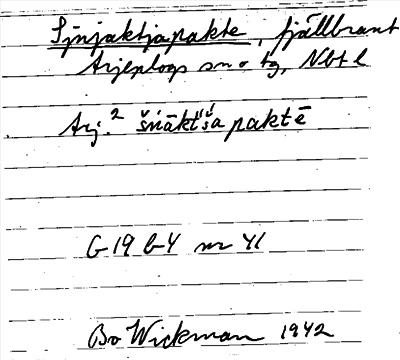 Sjnjaktjapakte, fjällbrant
Arjeplogs sn o tg, Nbt l
Arj.² šńäktiša paktē
G 19 b 4 nr 41
Bo Wickman 1942